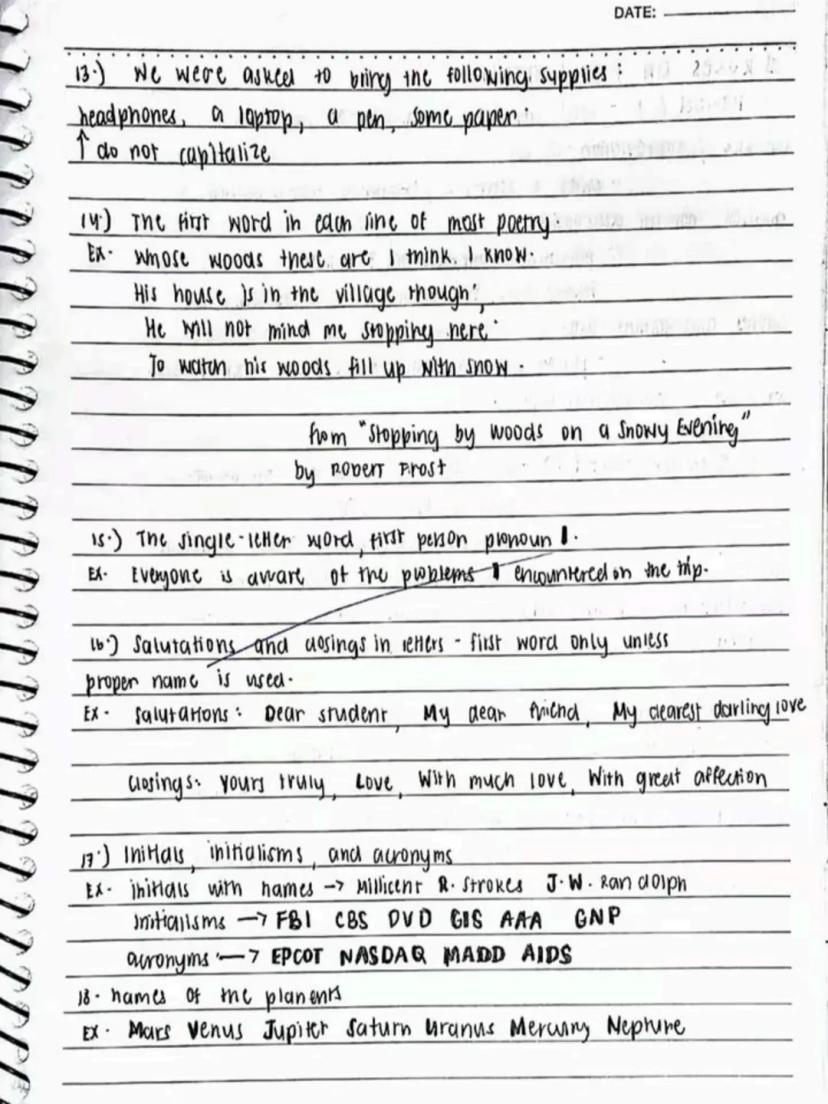 DATE:
13.) We were asked to bring the following supplies:
headphones, a laptop, a pen, some paper.
↑ do not capitalize
14.) The first word in each line of most poetry
Ex. Whose woods these are I think I know.
His house is in the village though;
He will not mind me stopping here
To watch his woods fill up with snow.
from "Stopping by Woods on a Snowy Evening"
by Robert Frost
15.) The single-letter word, first person pronoun I.
Ex. Everyone is aware of the problems I encountered on the trip.
16.) Salutations and closings in letters - first word only unless
proper name is used.
Ex. Salutations: Dear student, My dear friend, My dearest darling love
Closings: Yours truly, Love, With much love, With great affection
17.) Initials, initialisms, and acronyms
Ex. initials with names -> Millicent R. Strokes J.W. Randolph
Initialisms -> FBI CBS DVD GIS AAA GNP
acronyms -> EPCOT NASDAQ MADD AIDS
18. names of the planents
Ex. Mars Venus Jupiter Saturn Uranus Mercury Neptune